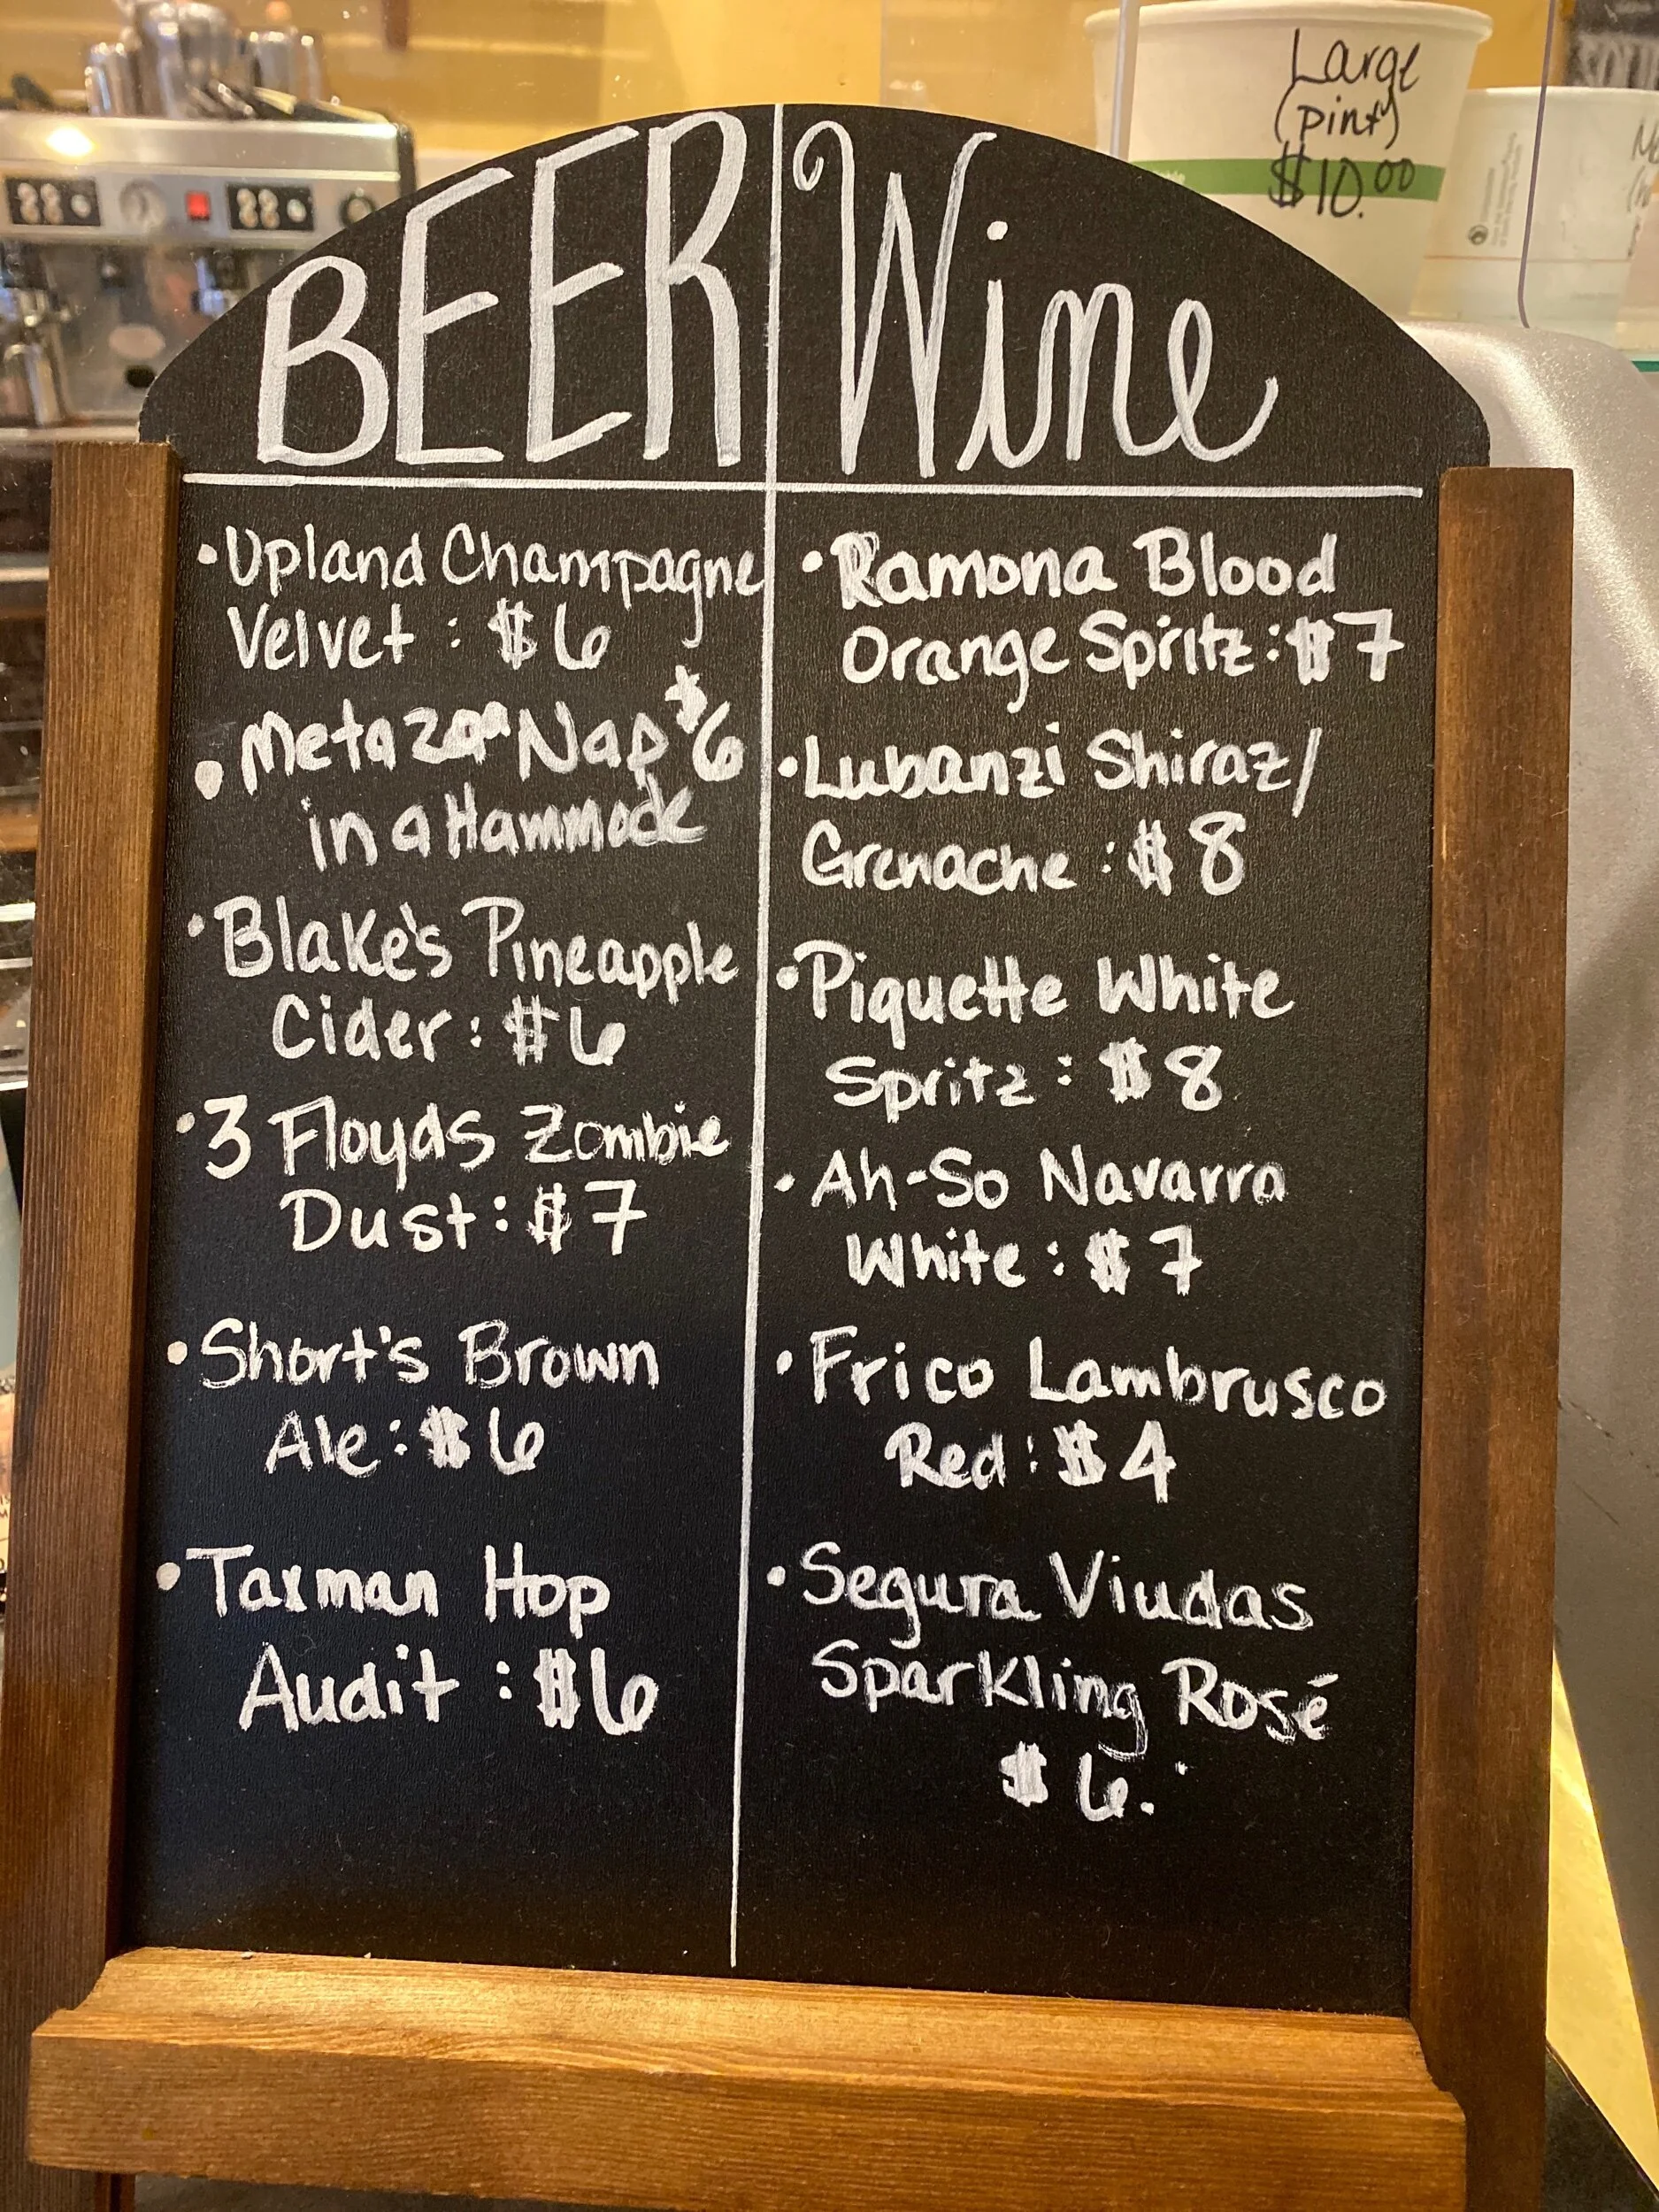 Large
(pint)
$10.00
BEER
Wine
• Upland Champagne
Velvet : $6
• Metazoa Nap $6
in a Hammock
• Blake's Pineapple
Cider : $6
• 3 Floyds Zombie
Dust : $7
• Short's Brown
Ale : $6
• Taxman Hop
Audit : $6
• Ramona Blood
Orange Spritz : $7
• Lubanzi Shiraz/
Grenache : $8
• Piquette White
Spritz : $8
• Ah-So Navarra
White : $7
• Frico Lambrusco
Red : $4
• Segura Viudas
Sparkling Rosé
$6.